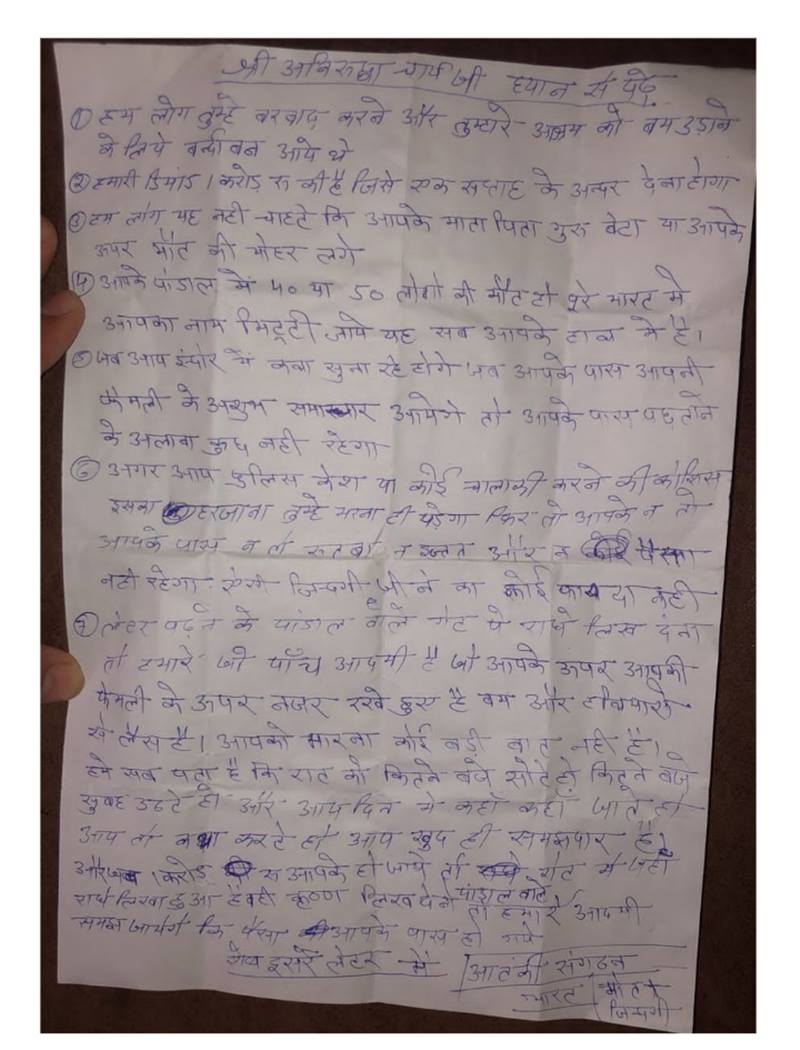 श्री अनिरुद्धा चार्य जी ध्यान से पढ़े
① हम लोग तुम्हे बरबाद करने और तुम्हारे आश्रम को बम उड़ाने
के लिये बन आये थे
② हमारी डिमांड 1 करोड़ रू की है जिसे एक सप्ताह के अन्दर देना होगा
③ हम लोग यह नही चाहते कि आपके माता पिता गुरु बेटा या आपके
ऊपर मौत की मोहर लगे
④ आपके पांडाल में 40 या 50 लोगो की मौत हो पूरे भारत मे
आपका नाम मिट्टी जाये यह सब आपके हाथ मे है।
⑤ जब आप इंदोर में कथा सुना रहे होगे जब आपके पास आपनी
फैमली के अशुभ समाचार आयेगे तो आपके पास पछताने
के अलावा कुछ नही रहेगा
⑥ अगर आप पुलिस केश या कोई चालाकी करने की कोशिस
इसका हरजाना तुम्हे भरना ही पड़ेगा फिर तो आपके न तो
आपके पास न तो रूतबा न इज्जत और न पैसा
नही रहेगा ऐसी जिन्दगी जीने का कोई फायदा नही
⑦ लेटर पढ़ने के पांडाल वाले गेट पे राधे लिख देना
तो हमारे जो पाँच आदमी है जो आपके ऊपर आपकी
फैमली के ऊपर नजर रखे हुए है बम और हथियारो
से लैस है। आपको मारना कोई बड़ी बात नही है।
हमे सब पता है कि रात को कितने बजे सोते हो कितने बजे
सुबह उठते हो और आप दिन मे कहाँ कहाँ जाते हो
आप तो कथा करते हो आप खुद ही समझदार है।
और जब 1 करोड़ रू आपके हो जाये तो गेट मे जहाँ
राधे लिखा हुआ है वही कृष्ण लिख देने पांडाल वाले तो हमारे आदमी
समझ जायेगे कि पैसा आपके पास हो गये
शेष दूसरे लेटर में
आतंकी संगठन
भारत
मौत +
(जिन्दगी)